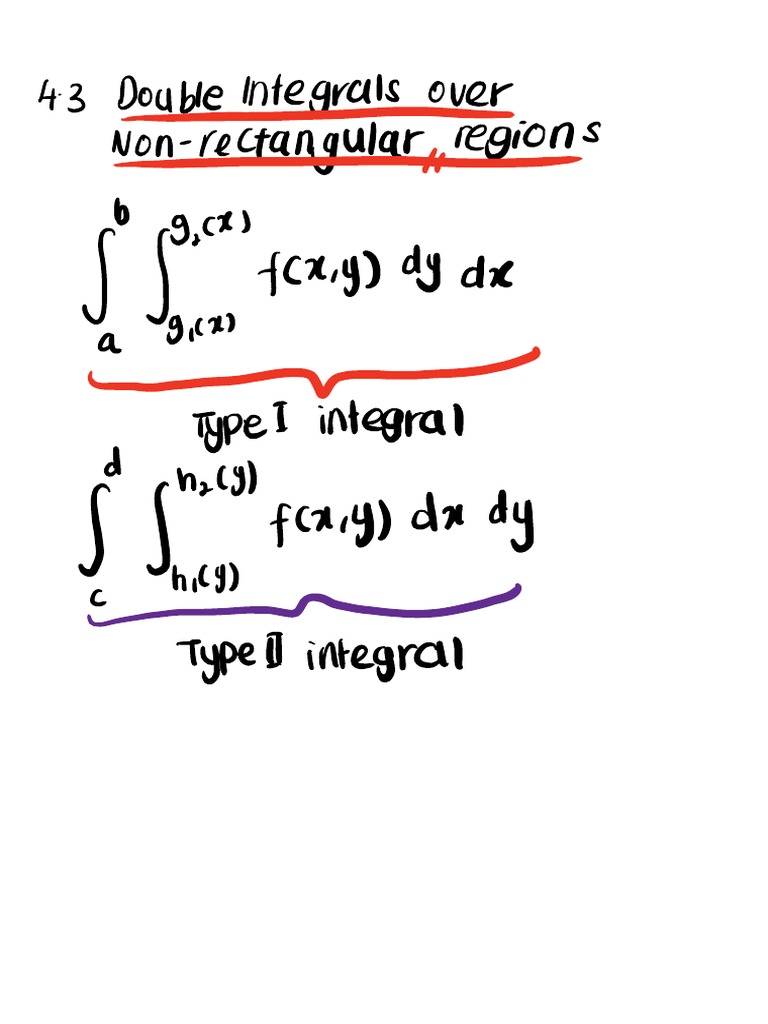 4.3 Double Integrals over
Non-rectangular regions
∫_a^b ∫_{g₁(x)}^{g₂(x)} f(x,y) dy dx
Type I integral
∫_c^d ∫_{h₁(y)}^{h₂(y)} f(x,y) dx dy
Type II integral